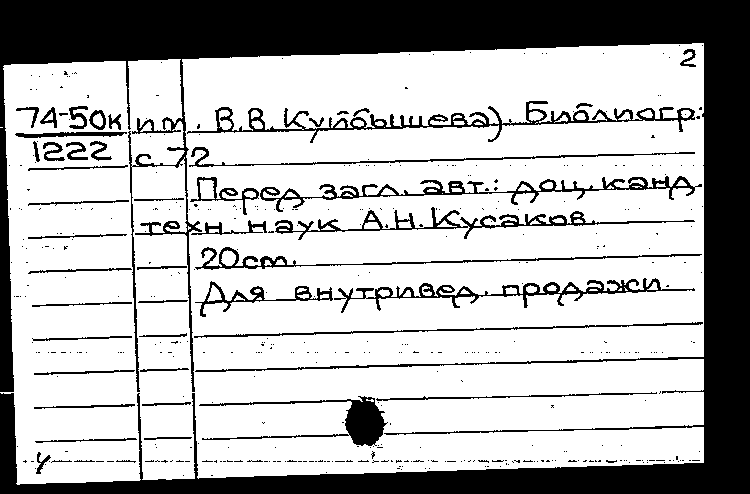 2
74-50к им. В.В.Куйбышева). Библиогр.:
1222 с. 72.
Перед загл. авт.: доц. канд.
техн. наук А.Н.Кусаков.
20cm.
Для внутривед. продажи.